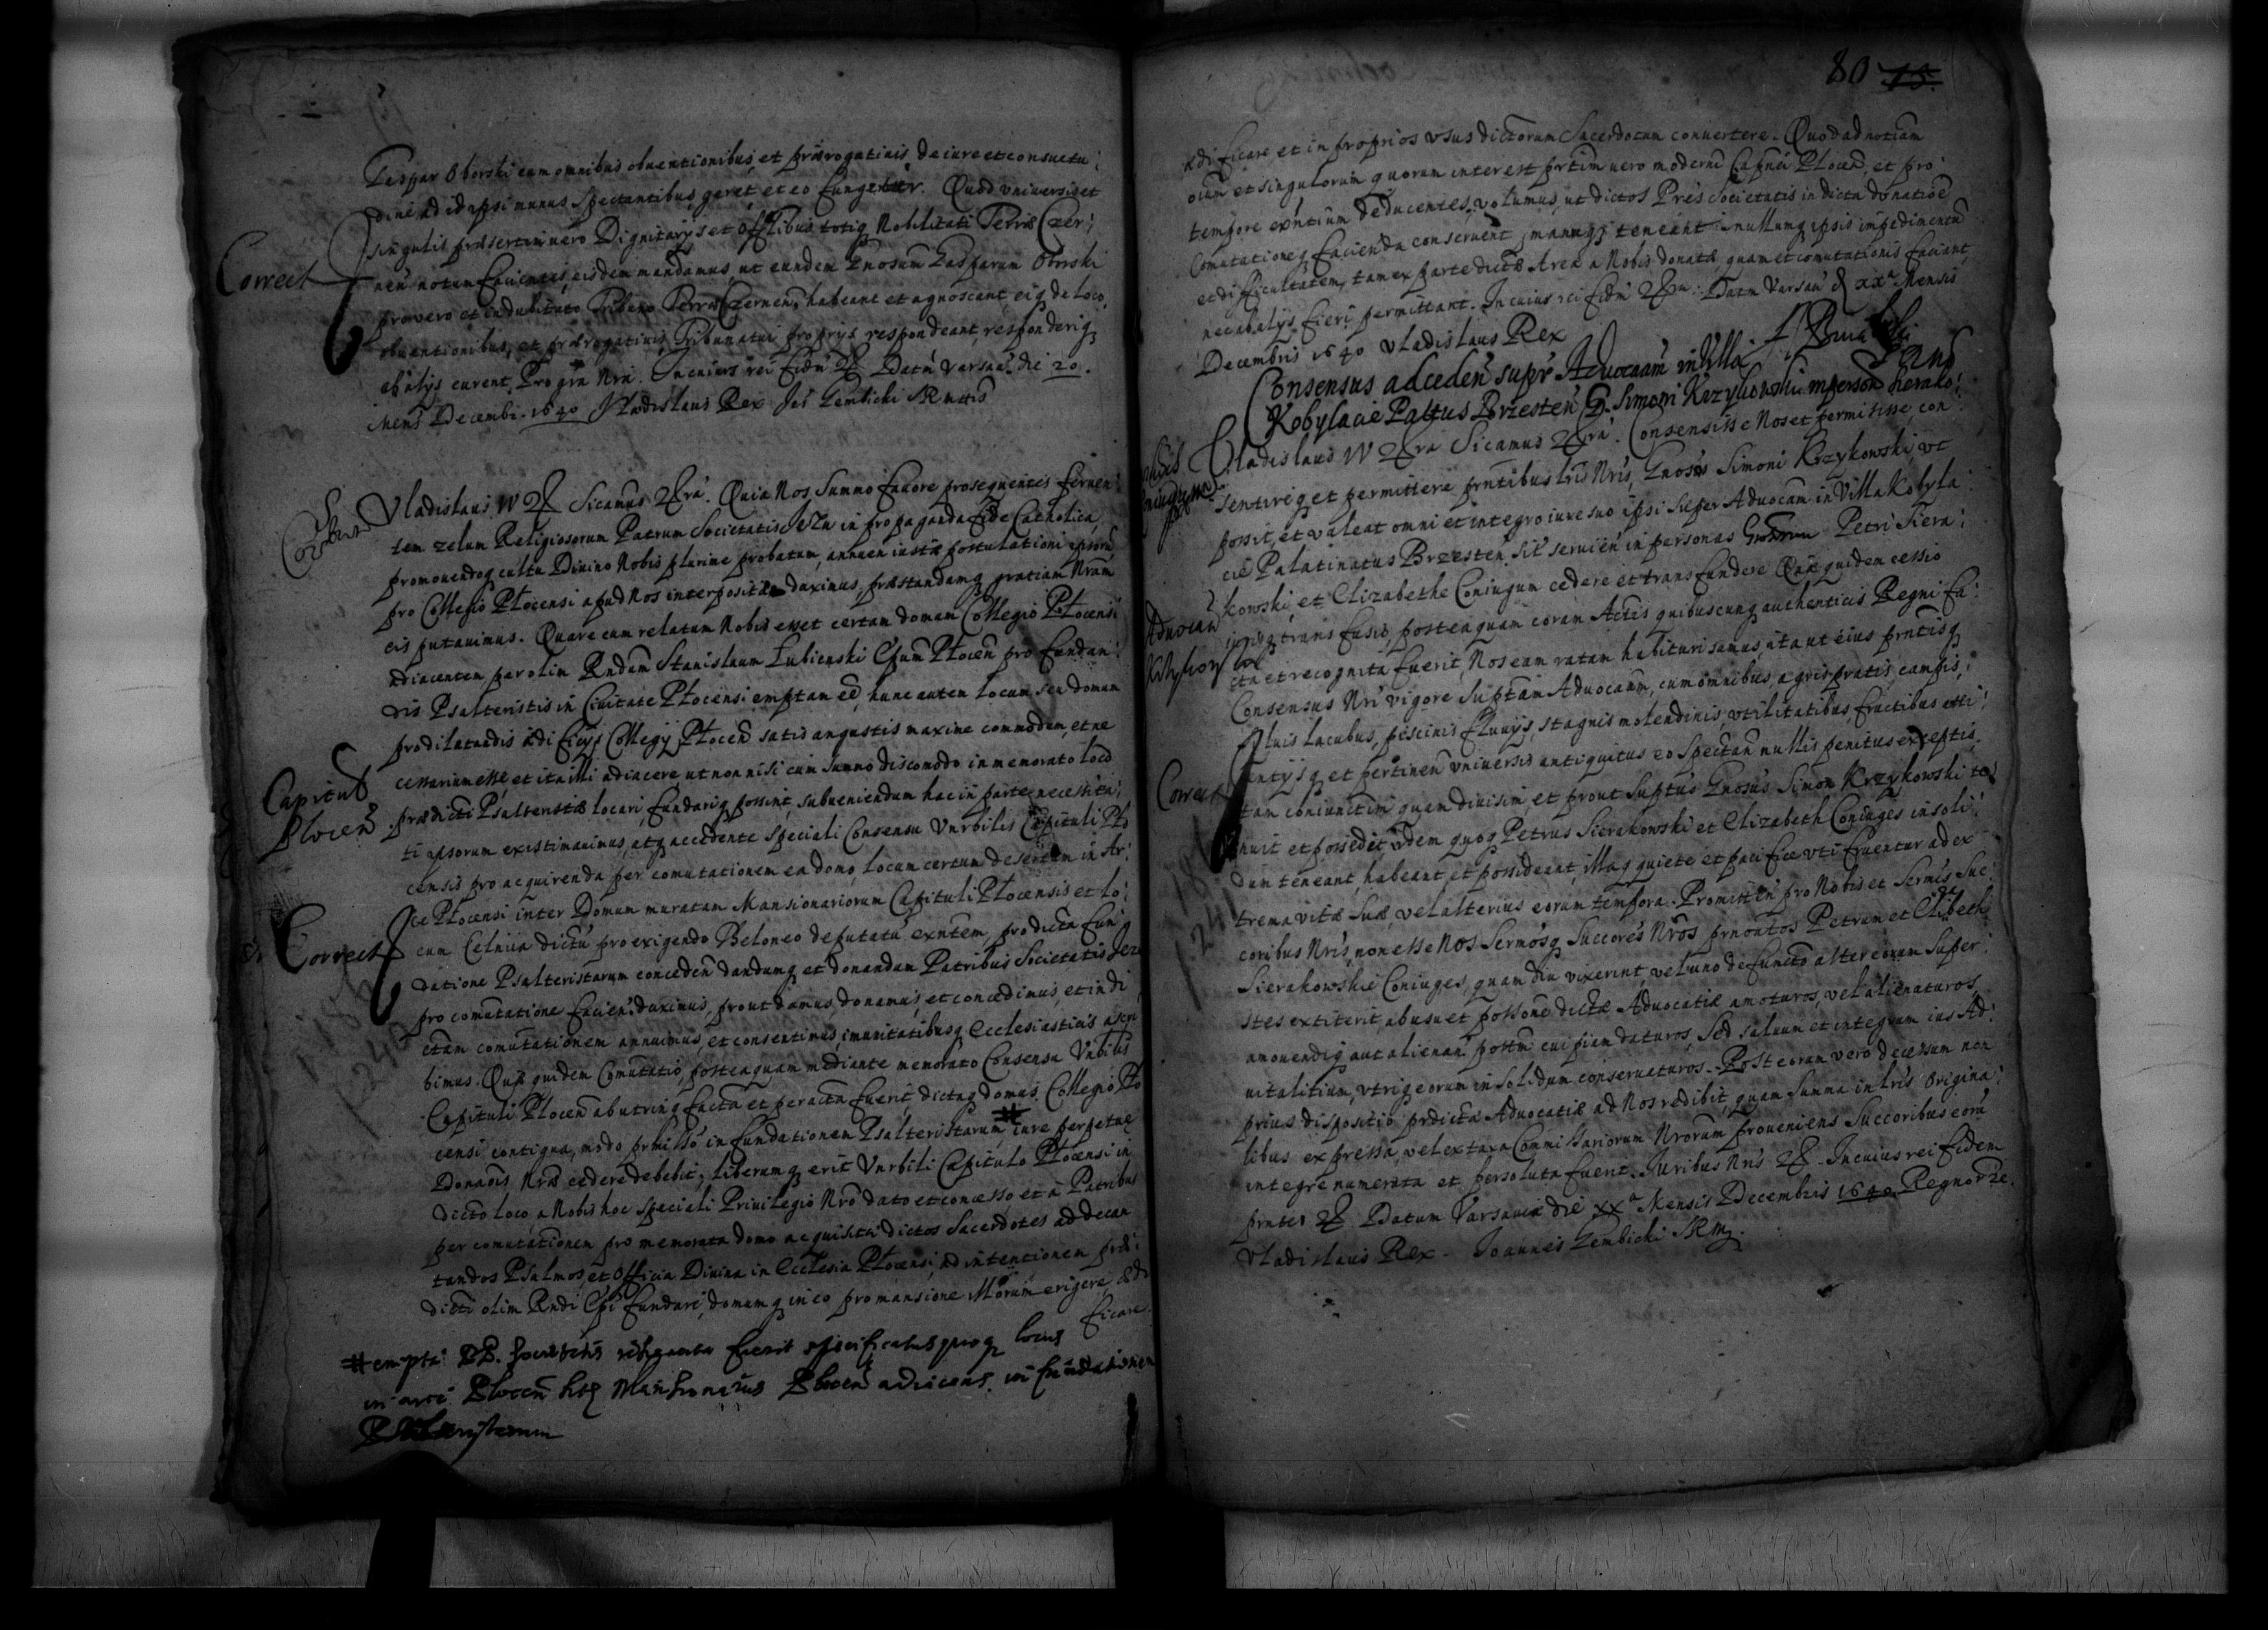 Gaspar Oborski cum omnibus obventionibus et prærogativis de iure et consuetu:
dine ad id ipsi munus spectantibus geret, et eo fungetur. Quod universis et
singulis præsertim vero Dignitarijs et Offlibus totiq Nobilitati Terræ Czer:
nen notum facientes, eisdem mandamus, ut eundem Gnosum Gasparum Oborski
pro vero et indubitato Tribuno Terræ Czernen, habeant et agnoscant, eiq de loco,
obventionibus, et prærogativis Tribunatui proprijs respondeant, responderiq
ab alijs curent, Pro gra Nra. In cuius rei fidm Datm Varsav. die 20.
Mens Decemb. 1640 Vladislaus Rex
Correct
Vladislaus IV Sicamus. Quia Nos summo favore prosequentes ferven
tem zelum Religiosorum Patrum Societatis Jesu in propaganda fide Catholica,
promovendoq cultu Divino Nobis plurime probatum, annuen iustæ postulationi ipsorum
pro Collegio Plocensi apud Nos interpositæ duximus, præstandamq gratiam Nram
eis putavimus. Quare cum relatum Nobis esset certam domum Collegio Plocensi
adiacentem per olim Rndum Stanislaum Łubienski Epum Plocen pro fundan:
dis Psalteristis in Civitate Plocensi emptam eẽ, hunc autem locum seu domum
pro dilatandis ædificijs Collegij Plocen satis angustis maxime commodam, et ne
cessarium esse, et ita illi adiacere ut non nisi cum summo discomodo in memorato loco
prædicti Psalteristæ locari, fundariq possint, subveniendum hac in parte necessita:
ti ipsorum existimavimus, atq accedente speciali Consensu Vnrbilis Capituli Plo
censis pro acquirenda per comutationem ea domo, locum certum desertum in Ar:
ce Plocensi inter Domum muratam Mansionariorum Capituli Plocensis, et lo:
cum Celniia dictu pro exigendo Teloneo deputatu exntem, pro dicta fun
datione Psalteristarum conceden dandumq et donandum Patribus Societatis Jesu
pro comutatione facien. duximus, prout damus, donamus, et concedimus, et in di
ctam comutationem annuimus, et consentimus, imunitatibusq Ecclesiasticis ascri
bimus. Quæ quidem Comutatio, posteaquam mediante memorato Consensu Vnrbilis
Capituli Plocen ab utrinq facta et peracta fuerit, dictaq domus Collegio Plo
censi contigua, modo prmisso in fundationem Psalteristarum # iure perpetuæ
Donaois Nræ cedere debebit, liberumq erit Vnrbili Capitulo Plocensi in
dicto loco a Nobis hoc speciali Privilegio Nro dato et concesso, et a Patribus
per comutationem pro memorata domo acquisita dictos Sacerdotes ad decan
tandos Psalmos, et Officia Divina in Ecclesia Plocensi ad intentionem prdi:
dicti olim Rndi Epi fundare, domumq in eo pro mansione illorum erigere, ædi
ficare.
Capituli
Plocen
Correct
# empta PP. Societatis resignata fuerit specificatusquoq locus
in arce Plocen Mansionarijs Plocen adiacens in fundationem
Psalteristarum
80 15.
ædificare et in proprios usus dictorum Sacerdotum convertere. Quod ad notiam
oium et singulorum quorum interest prtim vero moderni Capnei Plocen, et pro
tempore exntium deducentes, volumus, ut dictos Pres Societatis in dicta donatioe
Comutationeq facienda conservent, manuq teneant nullumq ipsis impedimentu
et difficultatem, tam ex parte dictæ Areæ a Nobis donatæ, quam et comutationis faciant,
nec ab alijs fieri permittant. In cuius rei fidm. Datm Varsav d xx Mensis
Decembris 1640 Vladislaus Rex
Consensus ad ceden supr Advocaam in Villa
Kobylacie Pallatus Brzesten G. Simoni Krzykowski in person Sierako:
Vladislaus IV Sicamus. Consensisse Nos et permisisse con
sentireq et permittere prntibus lris Nris, Gnoso Simoni Krzykowski, ut
possit, et valeat omni et integro iure suo ipsi super Advocam in Villa Kobyla
cie Palatinatus Brzesten sit servien in personas Petri Siera:
kowski, et Elizabethe Coniugum cedere et transfundere Quæ quidem cessio
iurisq transfusio, posteaquam coram Actis quibuscunq authenticis Regni fa:
cta et recognita fuerit, Nos eam ratam habituri sumus, ita ut eius prntisq
Consensus Nri vigore suptam Advocaam, cum omnibus, agris, pratis, campis,
silvis lacubus, piscinis fluvijs, stagnis molendinis, utilitatibus fructibus atti:
nentijsq et pertinen universis antiquitus eo spectan nullis penitus exceptis,
tam coniunctim quam divisim, et prout suptus Gnosus Simon Krzykowski te:
nuit et possedit, ijdem quoq Petrus Sierakowski et Elizabeth Coniuges in soli:
dum teneant, habeant, et possideant, illaq quiete et pacifice uti fruentur ad ex
trema vitæ suæ, vel alterius eorum tempora. Promitten pro Nobis et Sermis Suc:
coribus Nris, non esse Nos Sermosq Succores Nros prnoatos Petrum et Elizabeth
Sierakowskie Coniuges, quam diu vixerint, vel uno defuncto alter eorum super:
stes extiterit, ab usu et possone dictæ Advocatiæ amoturos, vel alienaturos,
amovendiq aut alienan. postm cuipiam daturos, sed salvum et integrum ius Ad:
vitalitium, utriq eorum in solidum conservaturos. Post eorum vero decessum non
prius dispositio prdictæ Advocatiæ ad Nos redibit, quam summa in lris origina:
libus expressa, vel ex taxa Commissariorum Nrorum proveniens Succoribus eoru
integre numerata et persoluta fuerit. Juribus Nris. In cuius rei fidem
prntes. Datum Varsaviæ die xx Mensis Decembris 1640. Regnor
Vladislaus Rex. Joannes Gembicki
Correct